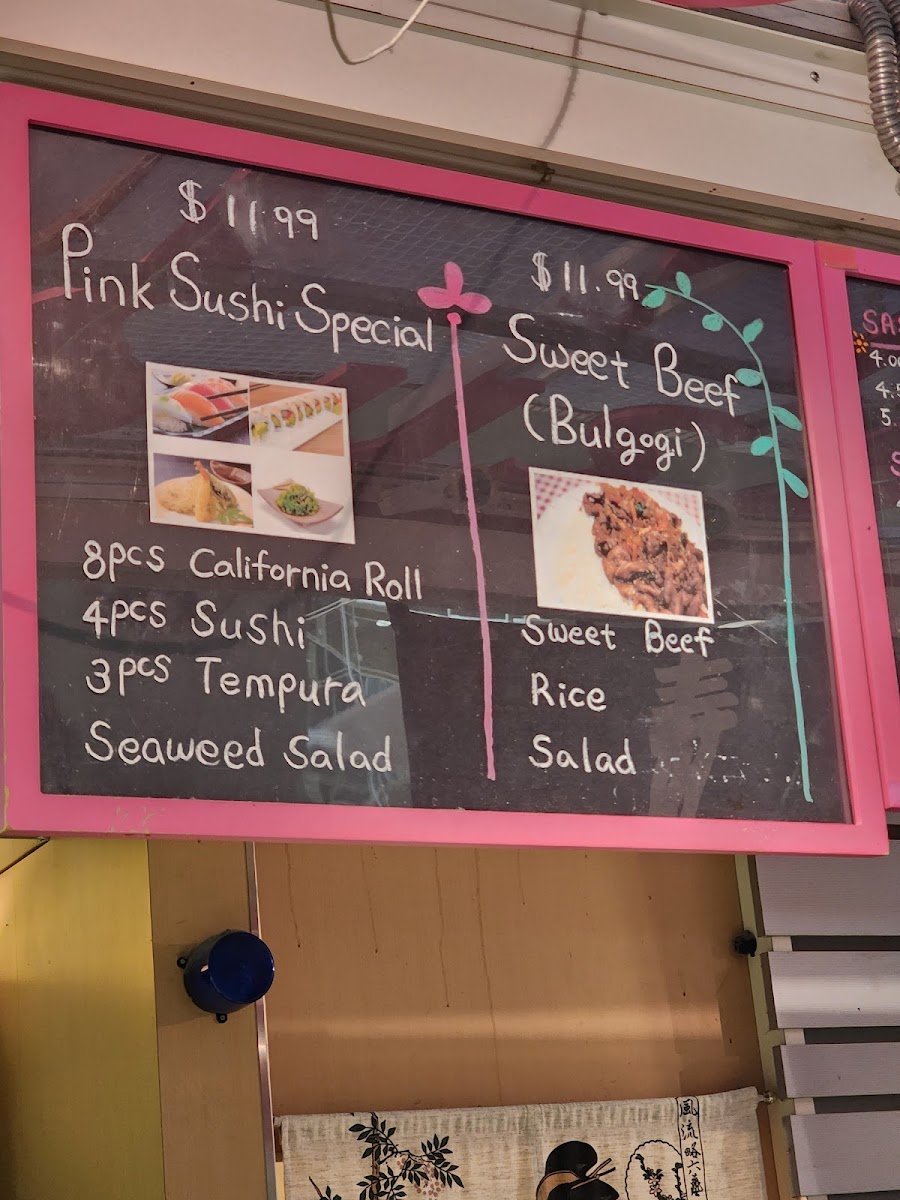 $11.99
Pink Sushi Special
8pcs California Roll
4pcs Sushi
3pcs Tempura
Seaweed Salad
$11.99
Sweet Beef
(Bulgogi)
Sweet Beef
Rice
Salad
寿
4.5
5.
風流略六藝